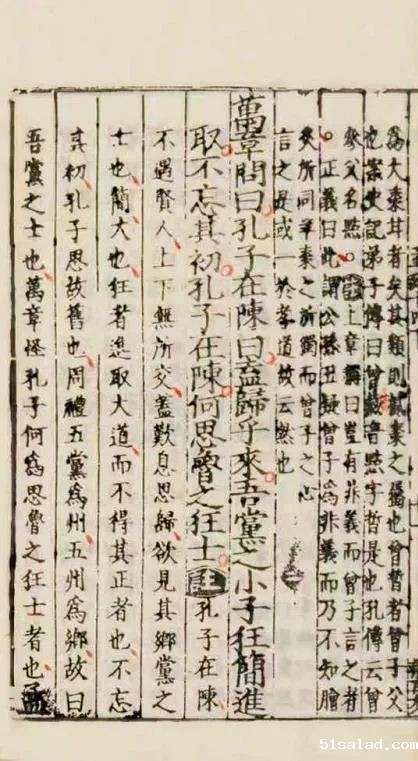 爲大棗甘者矣其類則樲棗之屬也曾晳者曾子父
也案史記弟子傳曰曾蒧音點字晳是也孔傳云曾
參父名點。注上章稱曰豈有非義而曾子言之者
。正義曰此謂公孫丑疑曾子爲非義而乃不知膾
炙所同羊棗之所獨而曾子之心
言之是或一於孝道故云然也
萬章問曰孔子在陳曰盍歸乎來吾黨之小子狂簡進
取不忘其初孔子在陳何思魯之狂士注孔子在陳
不遇賢人上下無所交蓋歎息思歸欲見其鄉黨之
士也簡大也狂者進取大道而不得其正者也不忘
其初孔子思故舊也周禮五黨爲州五州爲鄉故曰
吾黨之士也萬章怪孔子何爲思魯之狂士者也孟
51salad.com